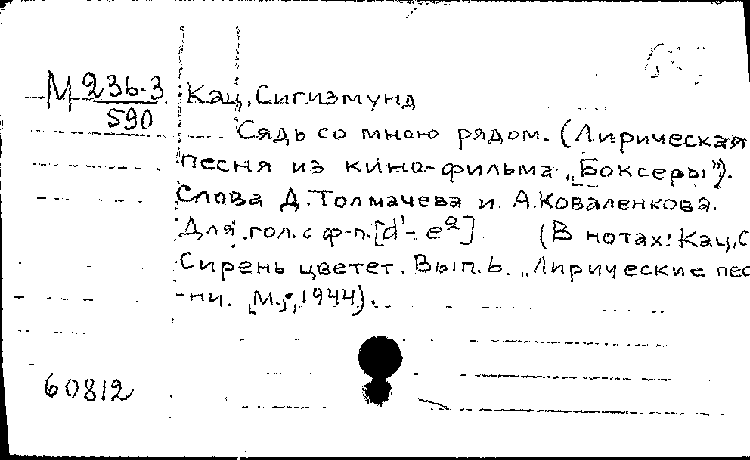 М 236-3
590
Кац, Сигизмунд
Сядь со мною рядом. (Лирическая
песня из кино-фильма „Боксеры").
Слова Д. Толмачева и А. Коваленкова.
Для гол. с ф-п. [d'- e²] (В нотах: Кац, С
Сирень цветет. Вып. 6. „Лирические пес
-ни. М., 1944).
60812